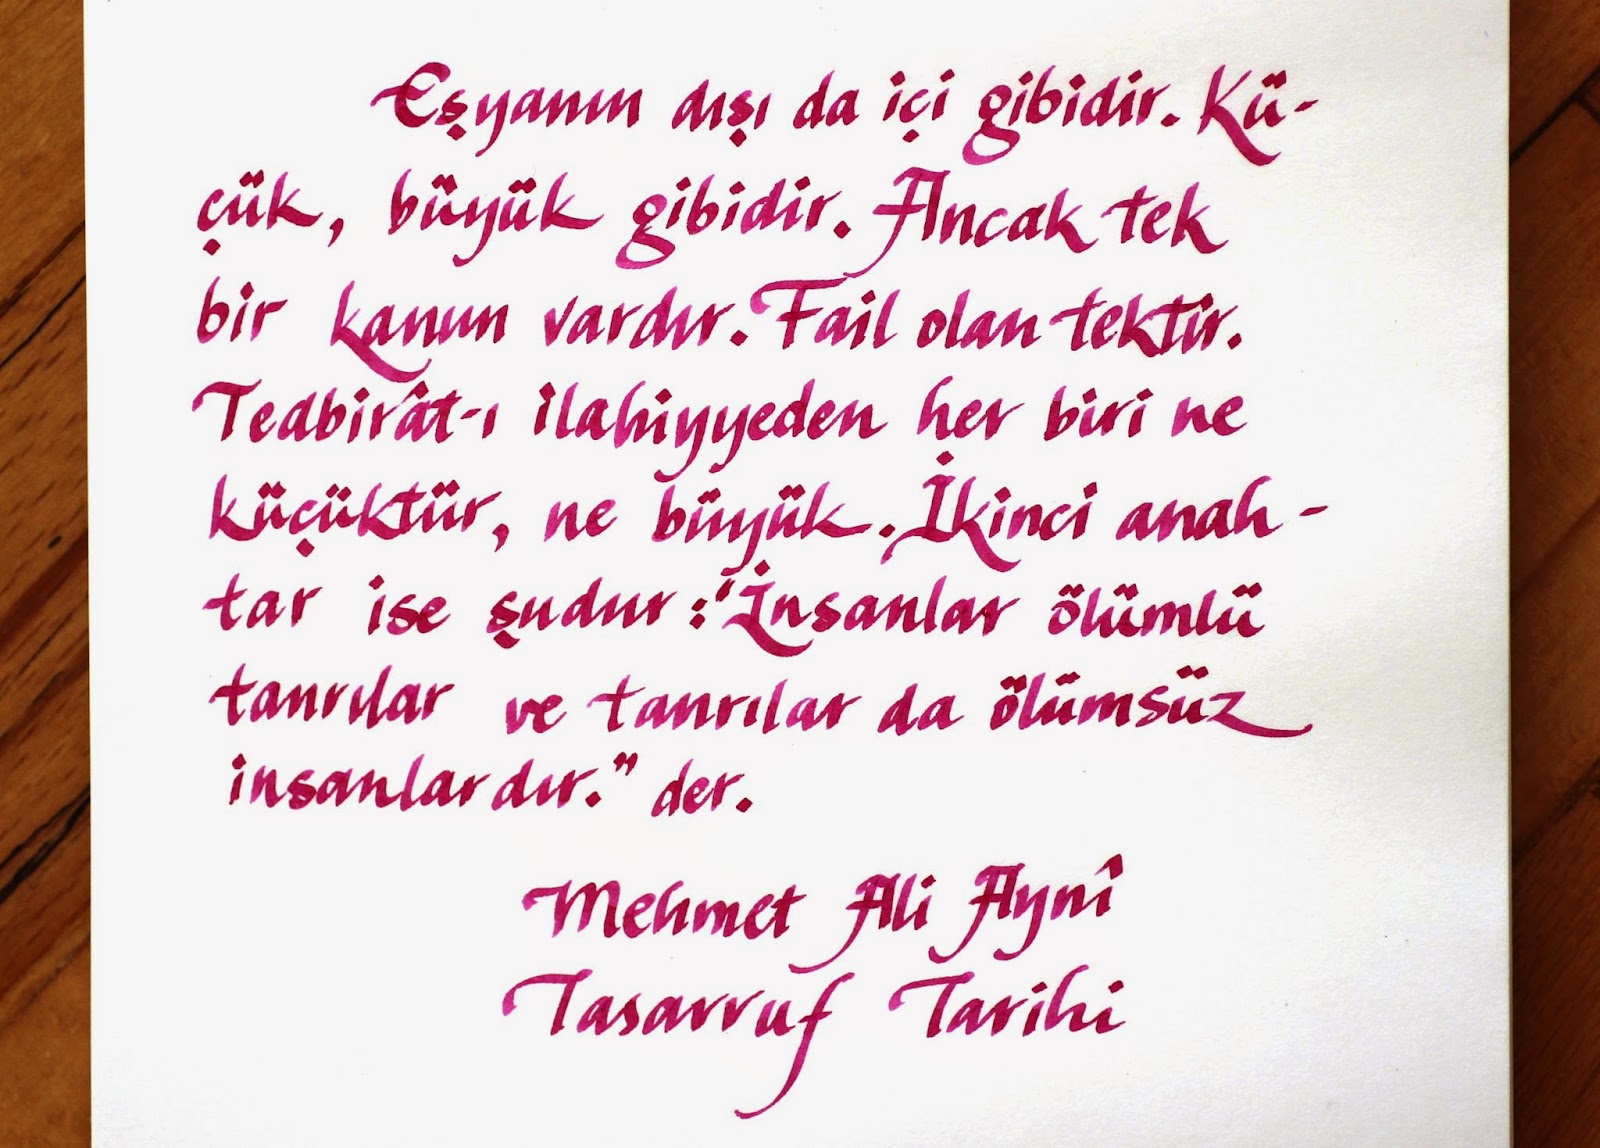 Eşyanın dışı da içi gibidir. Kü-
çük, büyük gibidir. Ancak tek
bir kanun vardır. Fail olan tektir.
Tedbirât-ı ilahiyyeden her biri ne
küçüktür, ne büyük. İkinci anah-
tar ise şudur: "İnsanlar ölümlü
tanrılar ve tanrılar da ölümsüz
insanlardır." der.
Mehmet Ali Aynî
Tasarruf Tarihi